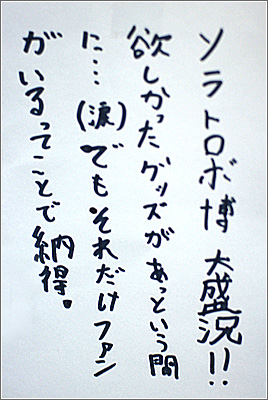 ソラトロボ博 大盛況!!
欲しかったグッズがあっという間
に…(涙)でもそれだけファン
がいるってことで納得。